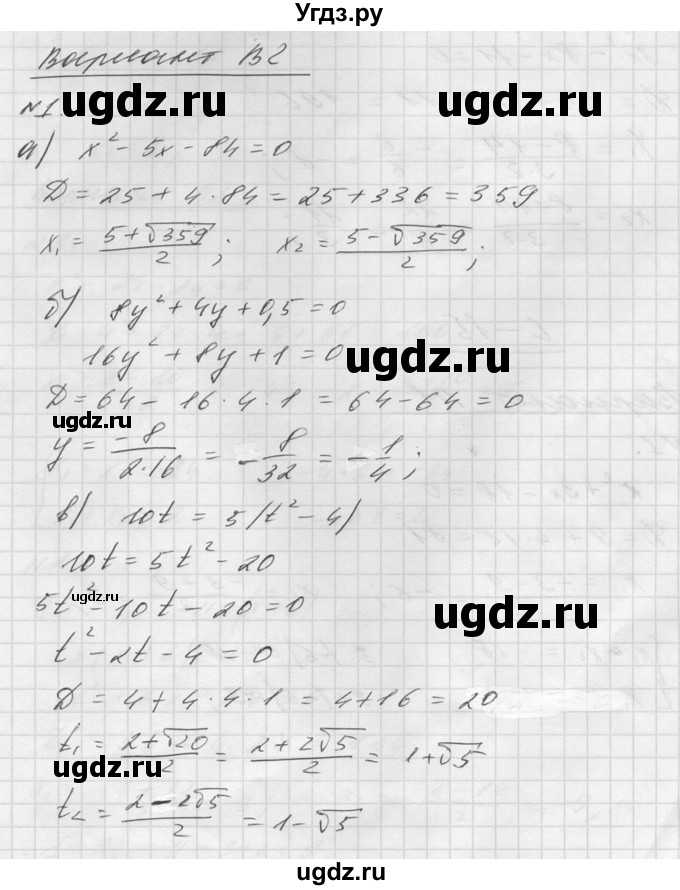 Угдз.ру
Вариант В2
ugdz.ru
ugdz.ru
№1
а) x² - 5x - 84 = 0
D = 25 + 4·84 = 25 + 336 = 359
x₁ = (5+√359)/2; x₂ = (5-√359)/2;
б) 8y² + 4y + 0,5 = 0
16y² + 8y + 1 = 0
ugdz.ru
D = 64 - 16·4·1 = 64 - 64 = 0
ugdz.ru
y = -8/(2·16) = -8/32 = -1/4;
в) 10t = 5(t² - 4)
10t = 5t² - 20
ugdz.ru
5t² - 10t - 20 = 0
ugdz.ru
t² - 2t - 4 = 0
D = 4 + 4·4·1 = 4 + 16 = 20
t₁ = (2+√20)/2 = (2+2√5)/2 = 1+√5
ugdz.ru
ugdz.ru
t₂ = (2-2√5)/2 = 1-√5
ugdz.ru